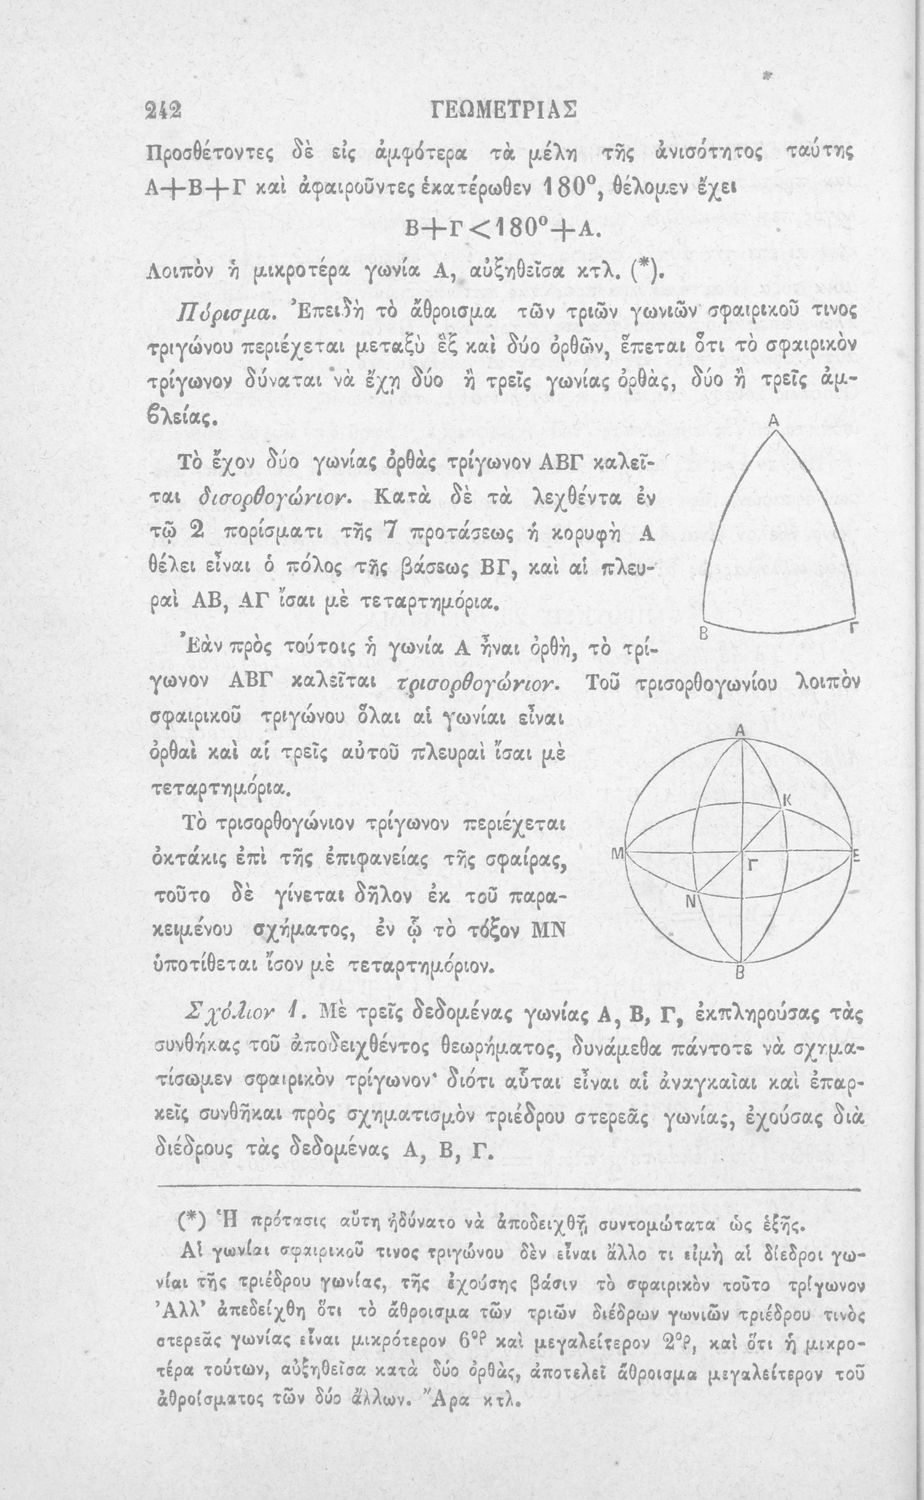 242 ΓΕΩΜΕΤΡΙΑΣ
Προσθέτοντες δὲ εἰς ἀμφότερα τὰ μέλη τῆς ἀνισότητος ταύτης
Α+Β+Γ καὶ ἀφαιροῦντες ἑκατέρωθεν 180°, θέλομεν ἔχει
Β+Γ<180°+Α.
Λοιπὸν ἡ μικροτέρα γωνία Α, αὐξηθεῖσα κτλ. (*).
Πόρισμα. Ἐπειδὴ τὸ ἄθροισμα τῶν τριῶν γωνιῶν σφαιρικοῦ τινος
τριγώνου περιέχεται μεταξὺ ἓξ καὶ δύο ὀρθῶν, ἕπεται ὅτι τὸ σφαιρικὸν
τρίγωνον δύναται νὰ ἔχῃ δύο ἢ τρεῖς γωνίας ὀρθὰς, δύο ἢ τρεῖς ἀμ-
βλείας.
Τὸ ἔχον δύο γωνίας ὀρθὰς τρίγωνον ΑΒΓ καλεῖ-
ται δισορθογώνιον. Κατὰ δὲ τὰ λεχθέντα ἐν
τῷ 2 πορίσματι τῆς 7 προτάσεως ἡ κορυφὴ Α
θέλει εἶναι ὁ πόλος τῆς βάσεως ΒΓ, καὶ αἱ πλευ-
ραὶ ΑΒ, ΑΓ ἴσαι μὲ τεταρτημόρια.
Α
Β
Γ
Ἐὰν πρὸς τούτοις ἡ γωνία Α ἦναι ὀρθὴ, τὸ τρί-
γωνον ΑΒΓ καλεῖται τρισορθογώνιον. Τοῦ τρισορθογωνίου λοιπὸν
σφαιρικοῦ τριγώνου ὅλαι αἱ γωνίαι εἶναι
ὀρθαὶ καὶ αἱ τρεῖς αὐτοῦ πλευραὶ ἴσαι μὲ
τεταρτημόρια.
Τὸ τρισορθογώνιον τρίγωνον περιέχεται
ὀκτάκις ἐπὶ τῆς ἐπιφανείας τῆς σφαίρας,
τοῦτο δὲ γίνεται δῆλον ἐκ τοῦ παρα-
κειμένου σχήματος, ἐν ᾧ τὸ τόξον ΜΝ
ὑποτίθεται ἴσον μὲ τεταρτημόριον.
Α
Κ
Μ
Γ
Ε
Ν
Β
Σχόλιον 1. Μὲ τρεῖς δεδομένας γωνίας Α, Β, Γ, ἐκπληρούσας τὰς
συνθήκας τοῦ ἀποδειχθέντος θεωρήματος, δυνάμεθα πάντοτε νὰ σχημα-
τίσωμεν σφαιρικὸν τρίγωνον· διότι αὗται εἶναι αἱ ἀναγκαῖαι καὶ ἐπαρ-
κεῖς συνθῆκαι πρὸς σχηματισμὸν τριέδρου στερεᾶς γωνίας, ἐχούσας διὰ
διέδρους τὰς δεδομένας Α, Β, Γ.
(*) Ἡ πρότασις αὕτη ἠδύνατο νὰ ἀποδειχθῇ συντομώτατα ὡς ἑξῆς.
Αἱ γωνίαι σφαιρικοῦ τινος τριγώνου δὲν εἶναι ἄλλο τι εἰμὴ αἱ δίεδροι γω-
νίαι τῆς τριέδρου γωνίας, τῆς ἐχούσης βάσιν τὸ σφαιρικὸν τοῦτο τρίγωνον
Ἀλλ’ ἀπεδείχθη ὅτι τὸ ἄθροισμα τῶν τριῶν διέδρων γωνιῶν τριέδρου τινὸς
στερεᾶς γωνίας εἶναι μικρότερον 6ᵒρ καὶ μεγαλείτερον 2ᵒρ, καὶ ὅτι ἡ μικρο-
τέρα τούτων, αὐξηθεῖσα κατὰ δύο ὀρθὰς, ἀποτελεῖ ἄθροισμα μεγαλείτερον τοῦ
ἀθροίσματος τῶν δύο ἄλλων. Ἄρα κτλ.